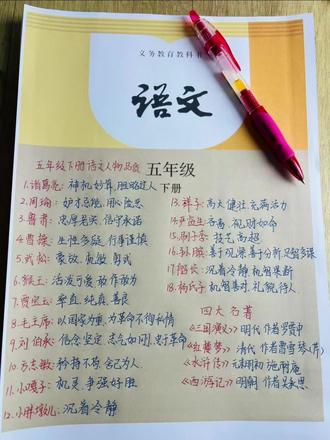 义务教育教科书
语文
五年级
下册
五年级下册语文人物品质
1.诸葛亮：神机妙算,胆略过人
2.周瑜：妒忌心强,用心险恶
3.鲁肃：忠厚老实,信守承诺
4.曹操：生性多疑,行事谨慎
5.武松：豪放、勇猛、勇武
6.猴王：活泼可爱,敢作敢为
7.贾宝玉：率直,纯真,善良
8.毛主席：以国家为重,为革命不徇私情
9.刘伯承：信念坚定,志气如川,忠于革命
10.方志敏：矜持不苟,舍己为人
11.小嘎子：机灵,争强好胜
12.小胖墩儿：沉着冷静
13.祥子：高大健壮,充满活力
14.严监生：吝啬,视财如命
15.刷子李：技艺高超
16.孙膑：善于观察,善于分析,足智多谋
17.船长：沉着冷静,机智果断
18.杨氏子：机智善对,礼貌待人
四大名著
《三国演义》明代 作者罗贯中
《红楼梦》清代 作者曹雪芹(芹)
《水浒传》元末明初 施耐庵
《西游记》明朝 作者吴承恩